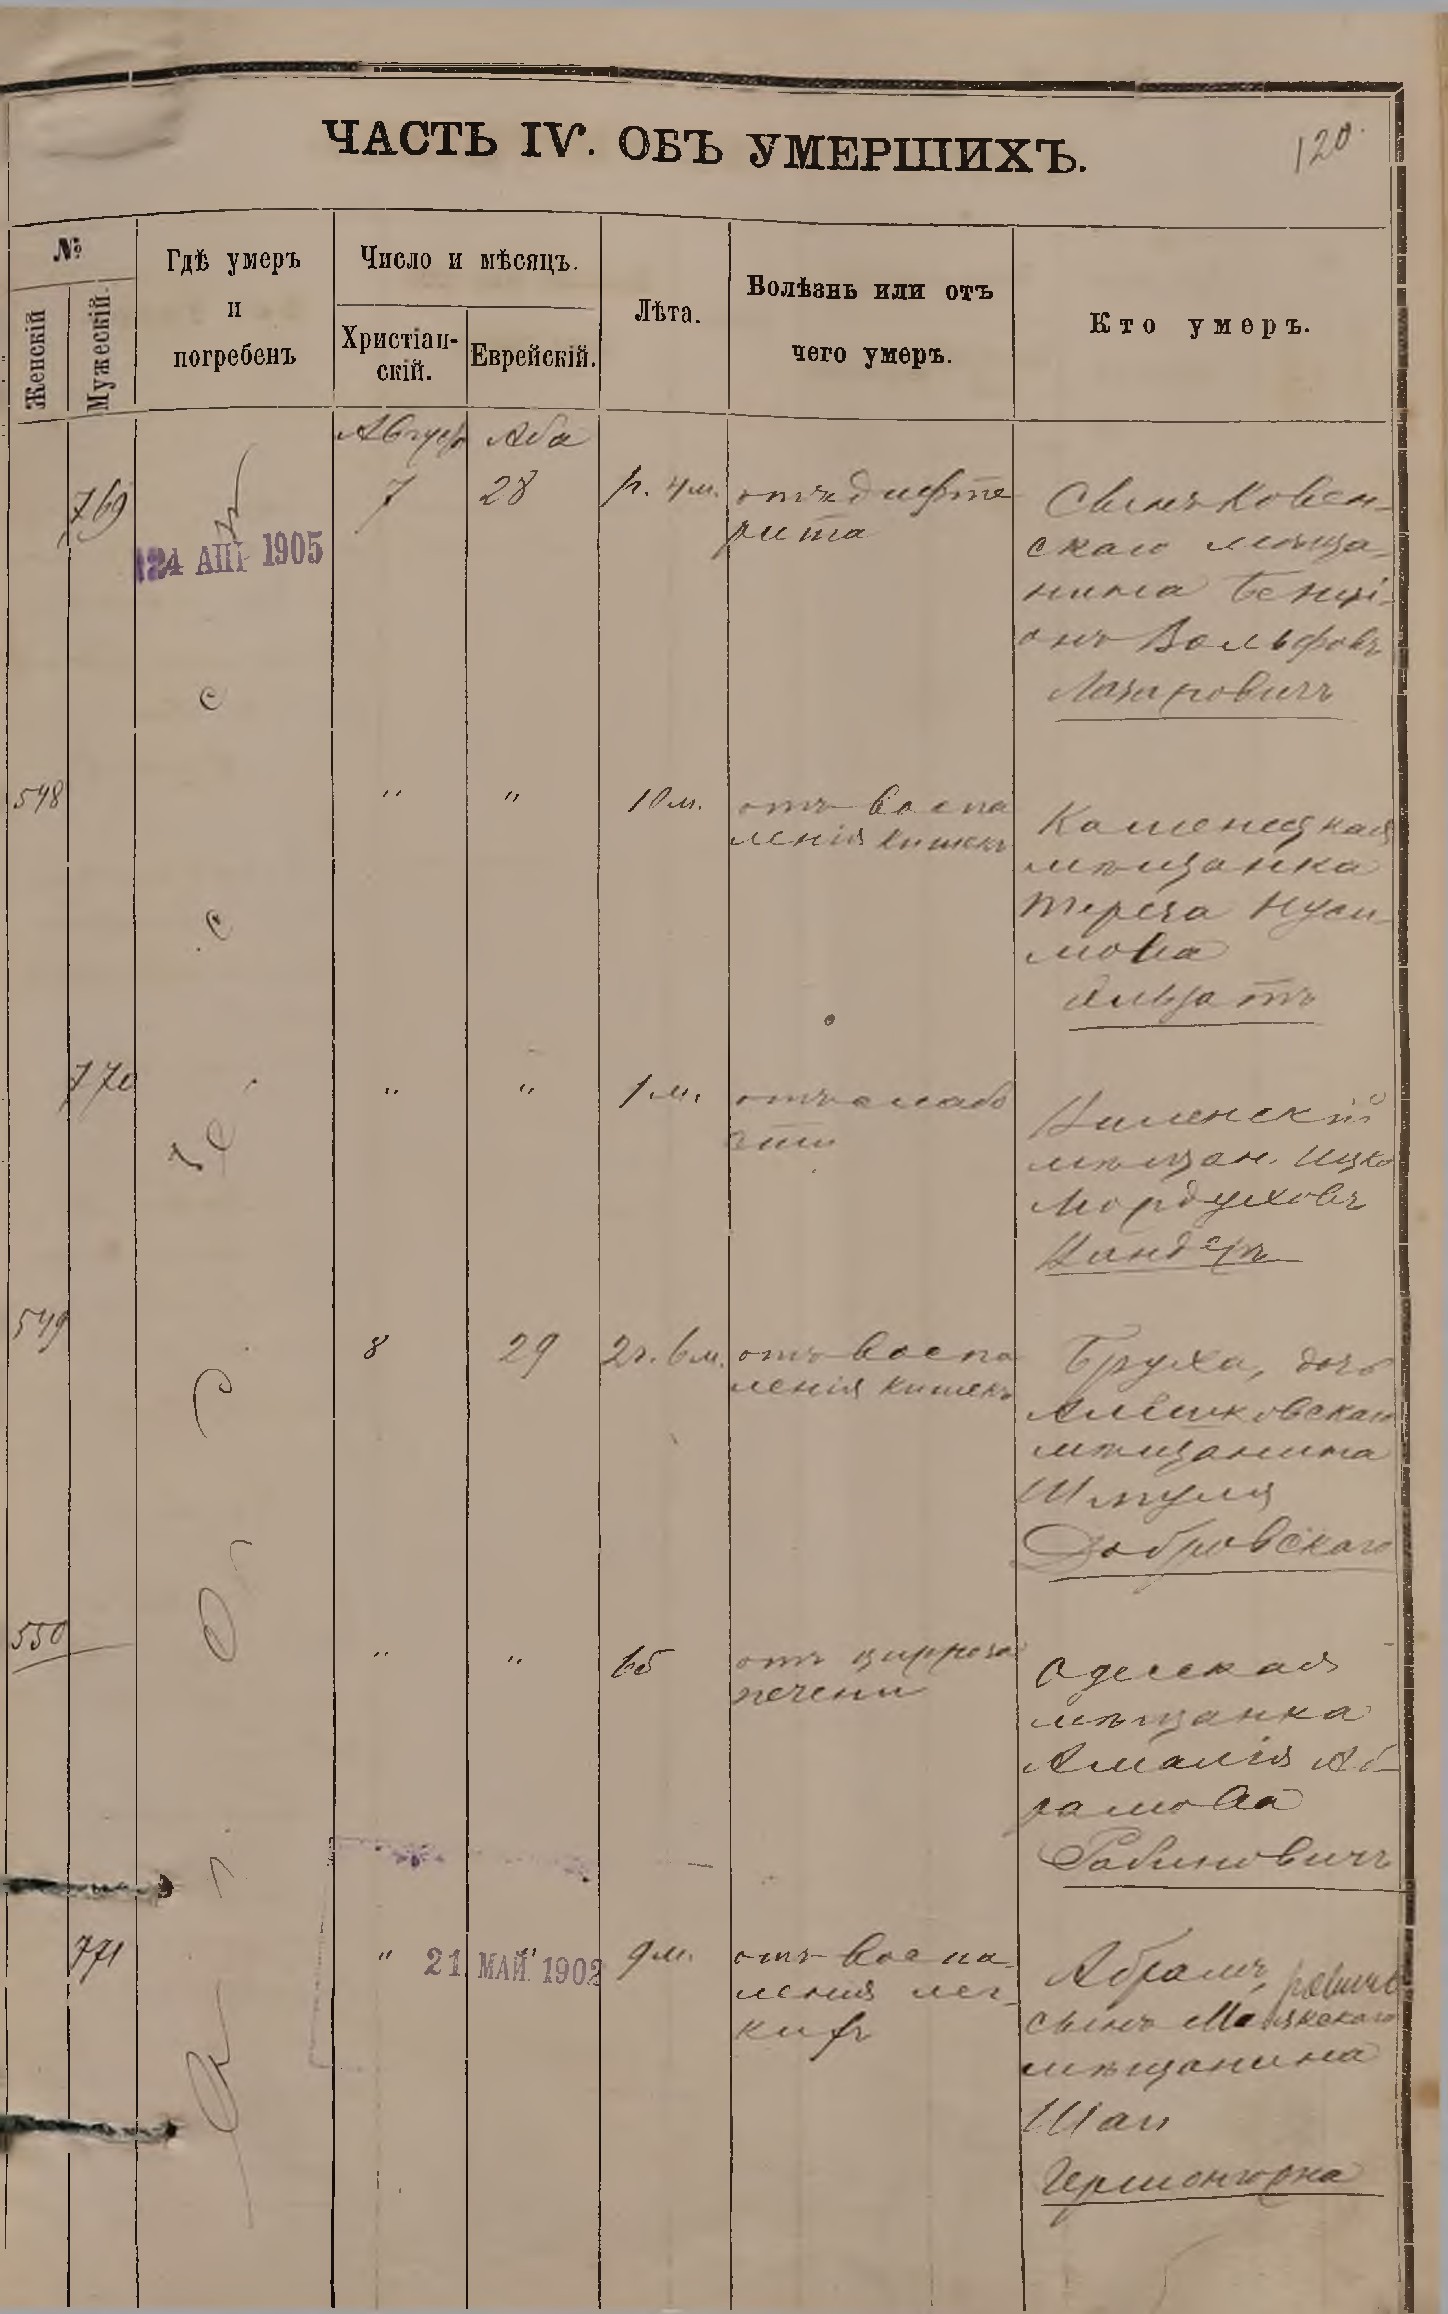 ЧАСТЬ IV. ОБЪ УМЕРШИХЪ.
120
№
Женскій
Мужескій.
Гдѣ умеръ
и
погребенъ
Число и мѣсяцъ.
Христіан-
скій.
Еврейскій.
Лѣта.
Болѣзнь или отъ
чего умеръ.
Кто умеръ.
Август Аба
769
7
28
1г. 4м.
отъ дифте
рита
Сынъ Ковен-
скаго мѣща-
нина Бенці-
онъ Вольфовъ
Лазаровичъ
24 АПР 1905
548
"
"
10 м.
отъ воспа
ленія кишекъ
Каменецкая
мѣщанка
Тереза Нуси-
мова
770
"
"
1 м.
отъ слабо
сти
Виленскій
мѣщан. Ицко
Мордуховъ
549
8
29
2г. 6м.
отъ воспа
ленія кишекъ
Бруха, дочь
Алешковскаго
мѣщанина
Шмуля
Добровскаго
550
"
"
65
отъ цирроза
печени
Одесская
мѣщанка
Амалія Аб-
рамова
Рабиновичъ
771
"
"
21 МАЙ 1902
9 м.
отъ воспа-
ленія лег-
кихъ
Абрамъ,
сынъ Маякскаго
мѣщанина
Шаи
Гермонгорна
Одесса